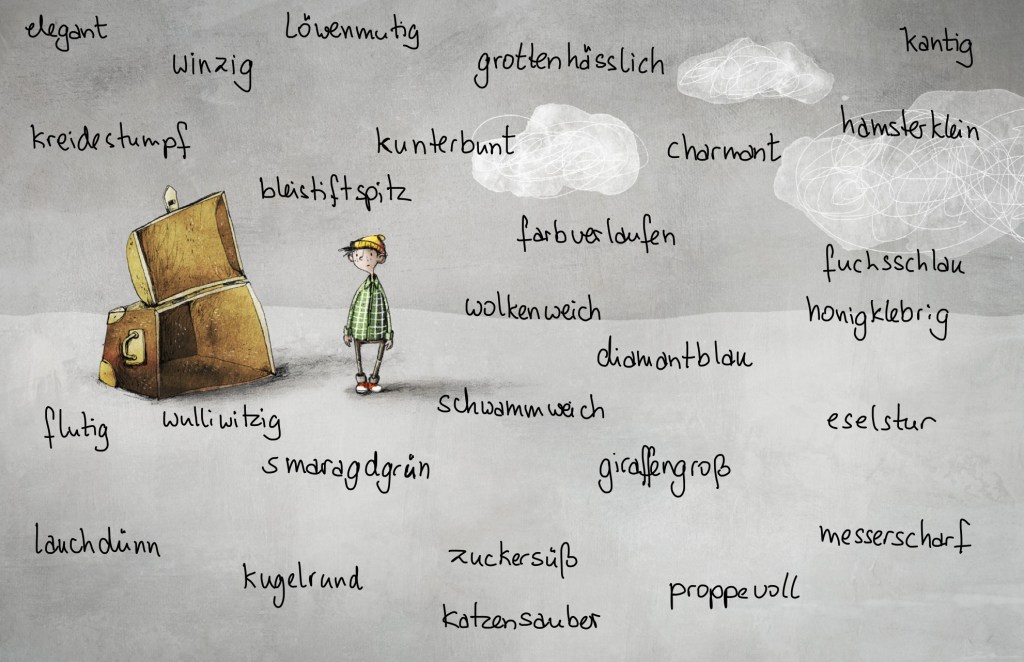 elegant
Löwenmutig
winzig
grottenhässlich
kantig
kreidestumpf
kunterbunt
charmant
hamsterklein
bleistiftspitz
farbverlaufen
fuchsschlau
wolkenweich
honigklebrig
diamantblau
schwammweich
flutig
wulliwitzig
eselstur
smaragdgrün
giraffengroß
lauchdünn
messerscharf
zuckersüß
kugelrund
proppevoll
katzensauber